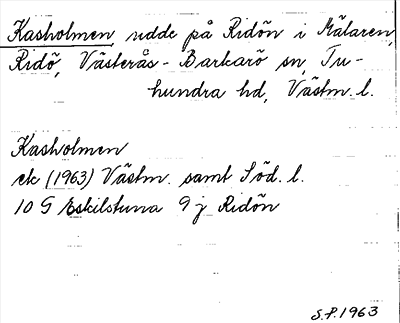 Kasholmen, udde på Ridön i Mälaren,
Ridö, Västerås-Barkarö sn, Tu-
hundra hd, Västm. l.
Kasholmen
ek (1963) Västm. samt Söd. l.
10 G Eskilstuna 9 j Ridön
S.P. 1963